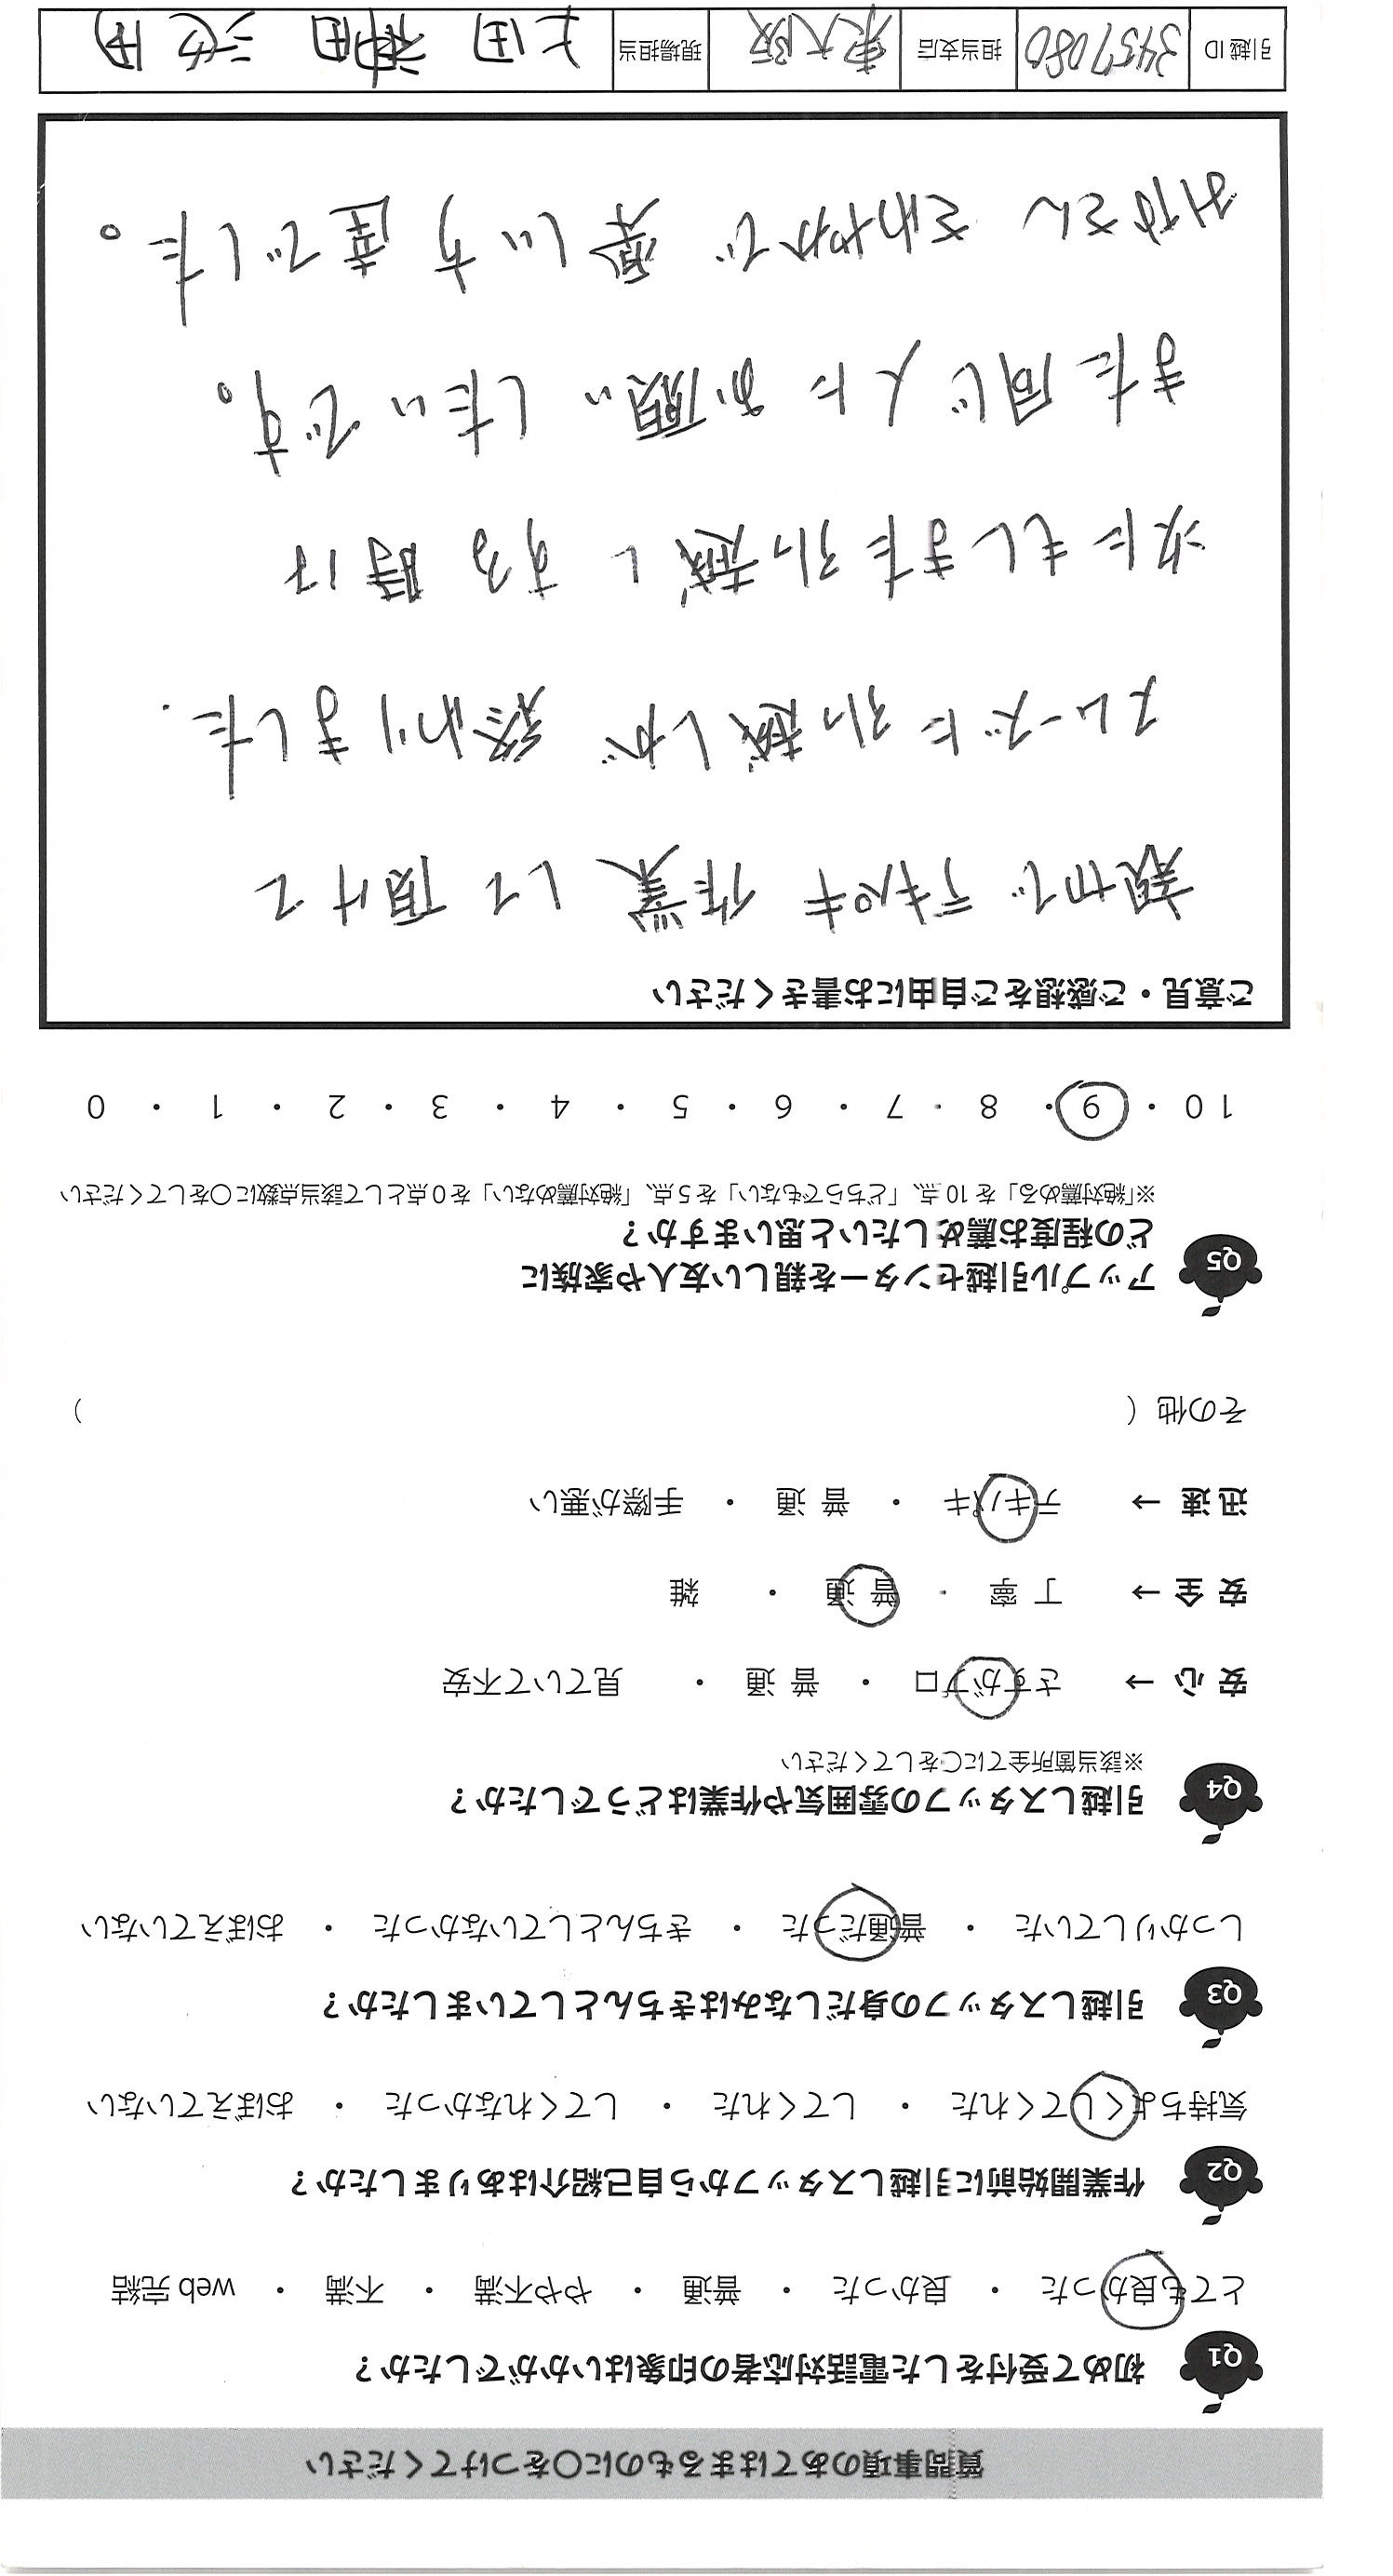 質問事項のあてはまるものに○をつけてください
Q1 初めて受付をした電話対応者の印象はいかがでしたか？
とても良かった ・ 良かった ・ 普通 ・ やや不満 ・ 不満 ・ web完結
Q2 作業開始前に引越しスタッフから自己紹介はありましたか？
気持ちよくしてくれた ・ してくれた ・ してくれなかった ・ おぼえていない
Q3 引越しスタッフの身だしなみはきちんとしていましたか？
しっかりしていた ・ 普通だった ・ きちんとしていなかった ・ おぼえていない
Q4 引越しスタッフの雰囲気や作業はどうでしたか？
※該当箇所全てに○をしてください
安心 → さすがプロ ・ 普通 ・ 見ていて不安
安全 → 丁寧 ・ 普通 ・ 雑
迅速 → テキパキ ・ 普通 ・ 手際が悪い
その他 （ ）
Q5 アップル引越センターを親しい友人や家族に
どの程度お薦めしたいと思いますか？
※「絶対薦める」を10点、「どちらでもない」を5点、「絶対薦めない」を0点として該当点数に○をしてください
10 ・ 9 ・ 8 ・ 7 ・ 6 ・ 5 ・ 4 ・ 3 ・ 2 ・ 1 ・ 0
ご意見・ご感想をご自由にお書きください
親切で テキパキ 作業 して 頂けて
スムーズに 引っ越しが 終わりました.
次に もしまた 引っ越し する 時は
また 同じ 人に お願い したいです。
みなさん さわやかで 楽しい方達でした。
引越ID 3457080 担当支店 東大阪 現場担当 上田 神田